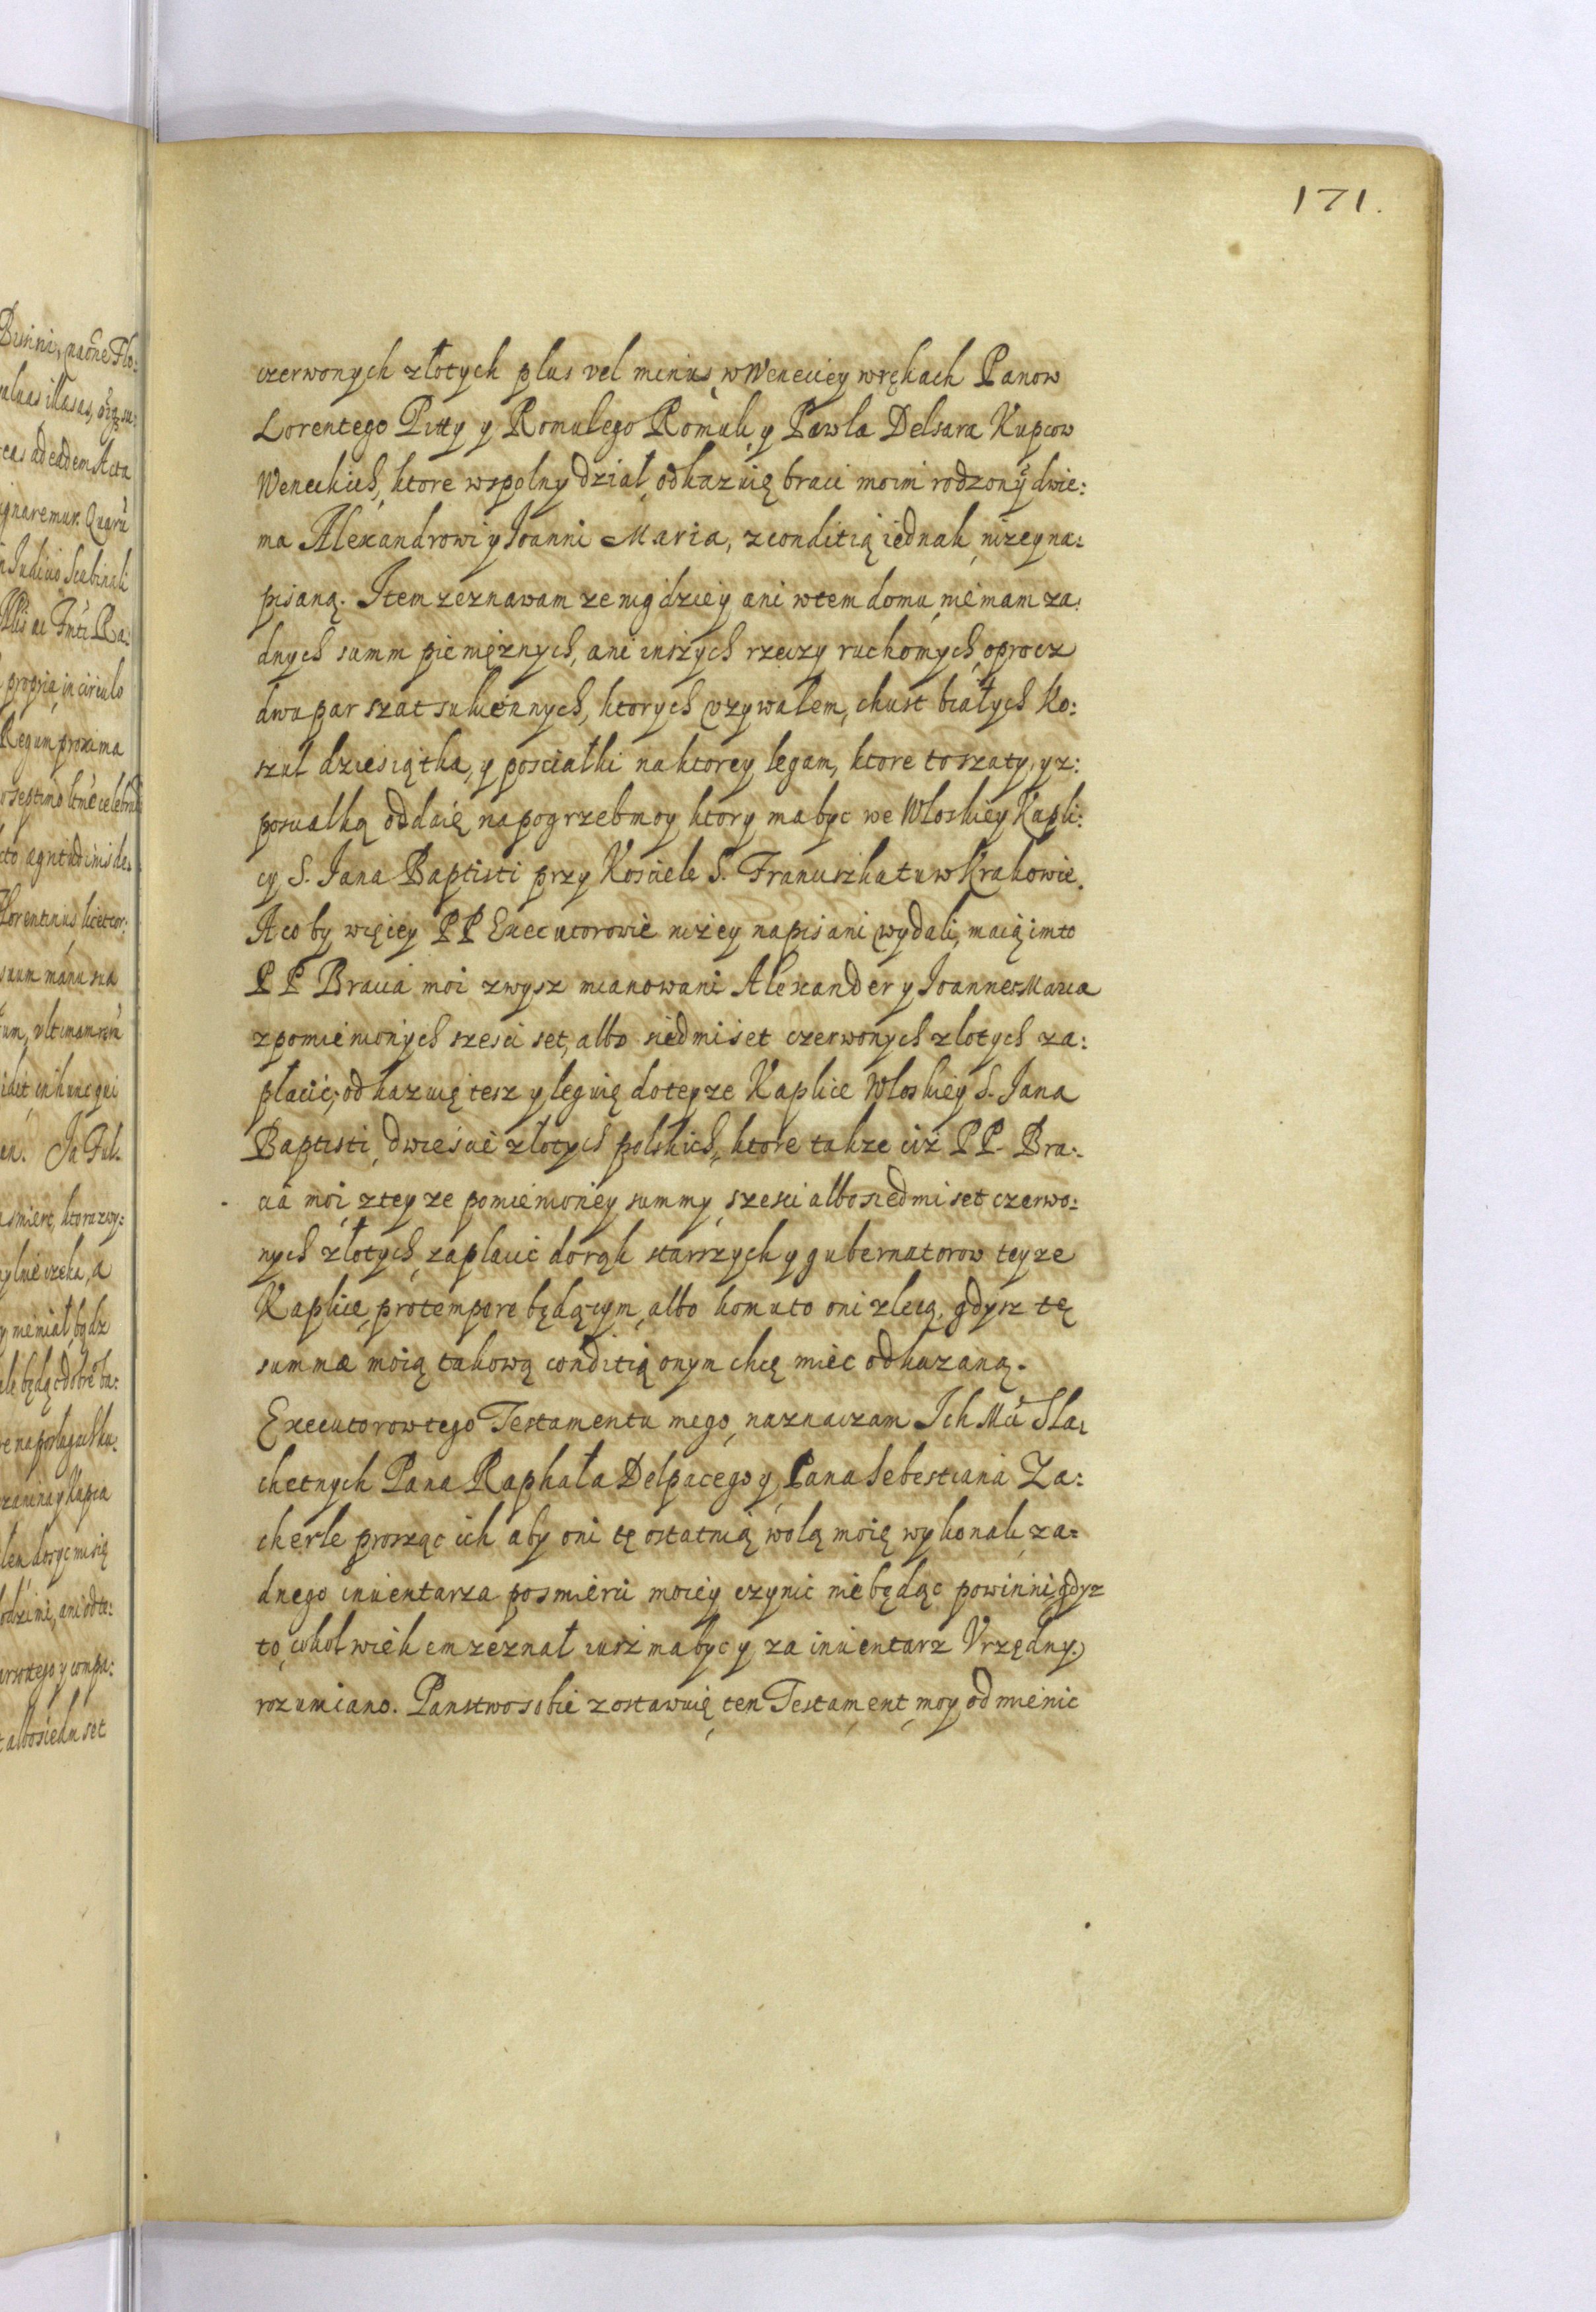 171.
czerwonych złotych plus vel minus, w Weneciey w rękach Panow
Lorentego Pitty y Romulego Romuli, y Pawla Delsara Kupcow
Weneckich, ktore wspolny dział, odkazuię braci moim rodzony dwie:
ma Alexandrowi y Joanni Maria, z conditią iednak nizey na:
pisaną. Item zeznawam ze nigdziey ani w tem domu, nie mam za:
dnych summ pieniężnych, ani inszych rzeczy ruchomych, oprocz
dwu par szat sukiennych, ktorych vzywałem, chust białych Ko:
szul dziesiątka, y posciałki na ktorey legam, ktore to szaty, y z:
posciałką oddaię na pogrzeb moy ktory ma byc we Włoskiey Kapli:
cy S. Jana Baptisti przy Kosciele S. Franciszka tu w Krakowie.
A co by więcey PP Executorowie nizey napisani wydali, maią im to
PP Bracia moi zwysz mianowani Alexander y Joannes Maria
z pomienionych szesci set, albo siedmiset czerwonych złotych za:
płacić, odkazuię tesz y leguię do teyze Kaplice Włoskiey S. Jana
Baptisti, dwieście złotych polskich, ktore takze ciż PP. Bra:
cia moi, z teyze pomienioney summy, szesci albo siedmi set czerwo:
nych złotych, zaplacić do rąk starszych y gubernatorow teyze
Kaplice, pro tempore będącym, albo komu to oni zlecą, gdysz tę
summę moią takową conditią onym chcę miec odkazaną.
Executorow tego Testamentu mego, naznaczam Ich Mć Sla:
chetnych Pana Raphała Delpacego y Pana Sebestiana Za:
cherle prosząc ich aby oni tę ostatnią wolą moię wykonali, za:
dnego inuentarza po smierci moiey czynic nie będąc powinni, gdyz
to, cokolwiek em zeznał iusz ma byc y za inuentarz Vrzędny
rozumiano. Panstwo sobie zostawuię, ten Testament moy odmienic